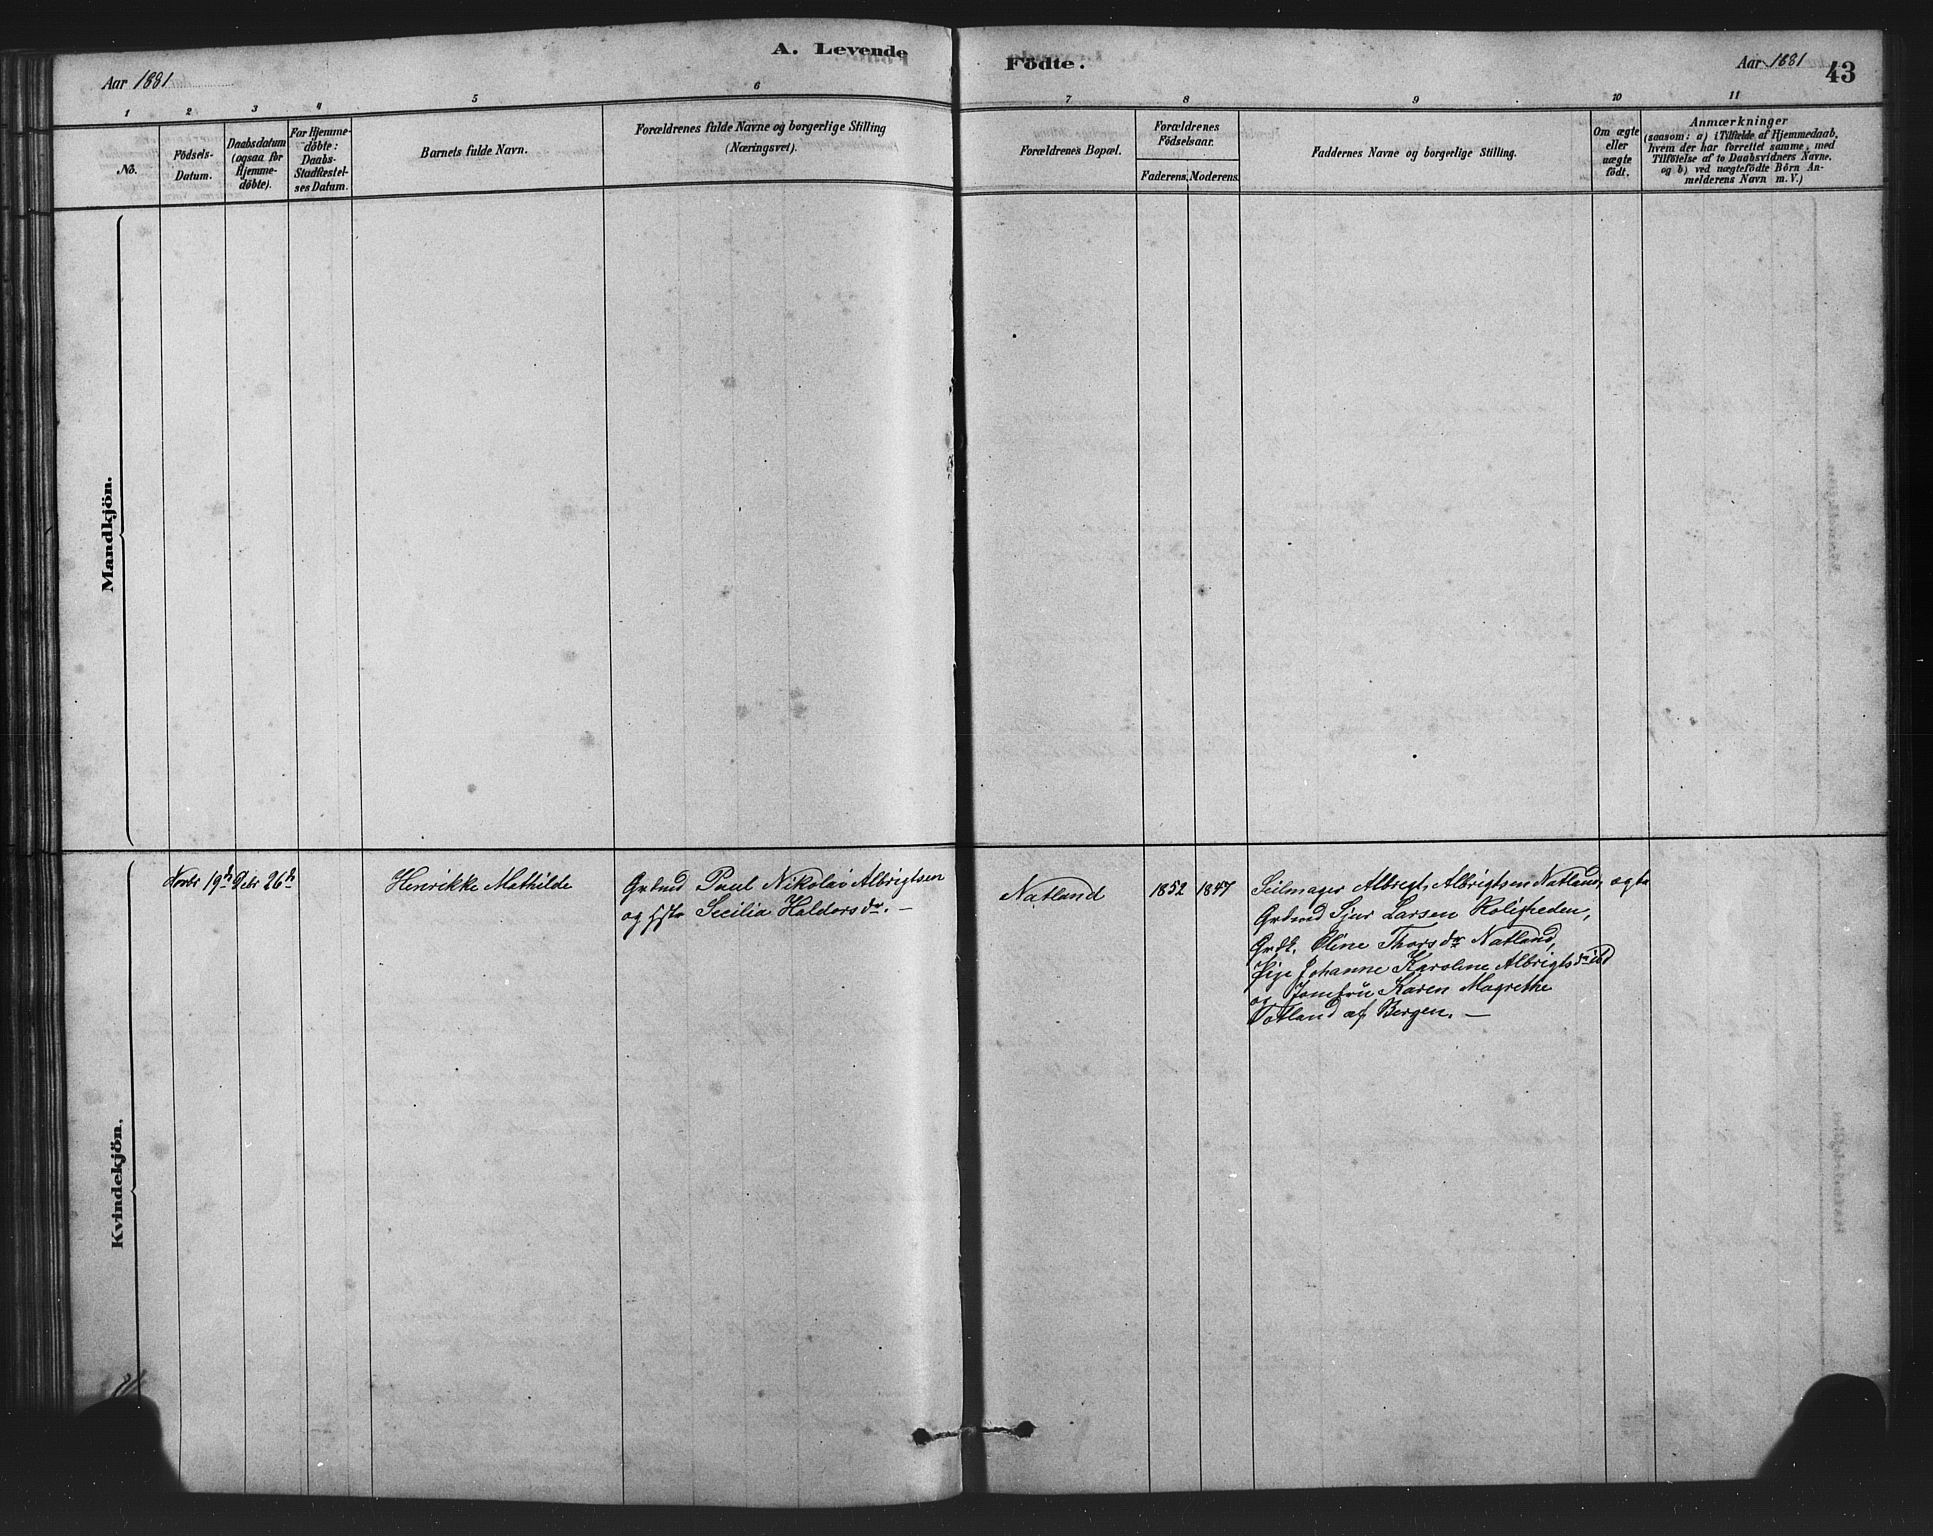 A. Levende
Aar 1881
1 2 3 4 5 6
No.
Födsels-
Datum.
Daabsdatum
(ogsaa for
Hjemme-
döbte).
For Hjemme-
döbte:
Daabs-
Stadfæstel-
ses Datum.
Barnets fulde Navn.
Forældrenes fulde Navne og borgerlige Stilling
(Næringsvei).
Mandkjön.
Novbr 19de Debr 26de
Henrikke Mathilde
Grdmd Paul Nikolai Albrigtsen
og Hstr Secilia Haldorsdr. —
Kvindekjön.
Födte.
Aar 1881
43
7 8 9 10 11
Forældrenes Bopæl.
Forældrenes
Födselsaar.
Faderens. Moderens.
Faddernes Navne og borgerlige Stilling.
Om ægte
eller
uægte
födt.
Anmærkninger
(saasom: a) i Tilfælde af Hjemmedaab,
hvem der har forrettet samme, med
Tilföielse af to Daabsvidners Navne,
og b) ved uægtefödte Börn An-
melderens Navn m. V.)
Natland
1852 1847
Seilmager Albregt Albrigtsen Natland, ægte
Grdmd Sjur Larsen Roligheden,
Grdk. Eline Thorsdr Natland,
Pige Johanne Karoline Albrigtsdr ibd
og Jomfru Karen Magrethe
Totland af Bergen. —